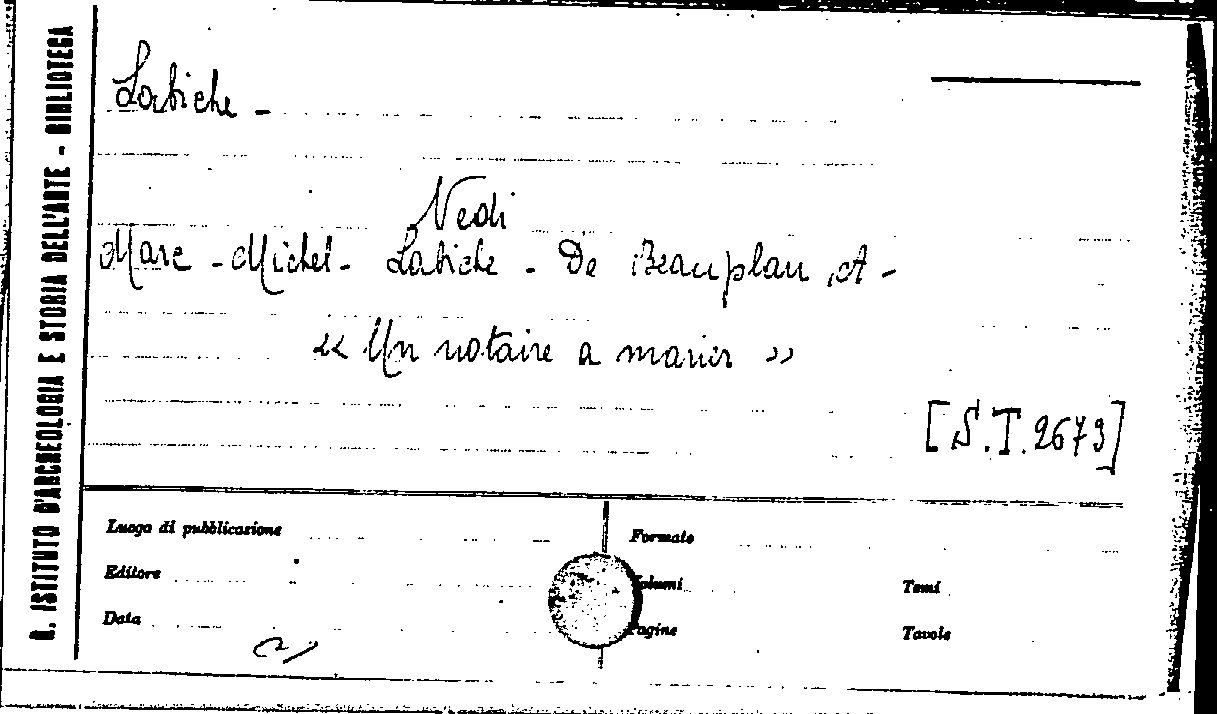 R. ISTITUTO D'ARCHEOLOGIA E STORIA DELL'ARTE - BIBLIOTECA
Labiche -
Vedi
Marc - Michel - Labiche - De Beauplan A -
« Un notaire a marier »
[S.T. 2673]
Luogo di pubblicazione
Formato
Editore
Volumi
Tomi
Data
Pagine
Tavole